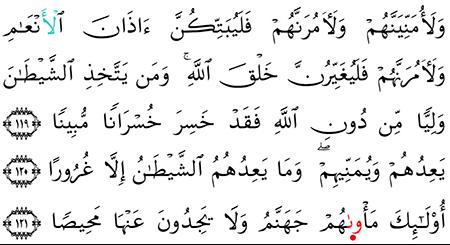 وَلَأُمَنِّيَنَّهُمْ وَلَأٓمُرَنَّهُمْ فَلَيُبَتِّكُنَّ ءَاذَانَ ٱلْأَنْعَٰمِ
وَلَأٓمُرَنَّهُمْ فَلَيُغَيِّرُنَّ خَلْقَ ٱللَّهِ ۚ وَمَن يَتَّخِذِ ٱلشَّيْطَٰنَ
وَلِيًّا مِّن دُونِ ٱللَّهِ فَقَدْ خَسِرَ خُسْرَانًا مُّبِينًا ١١٩
يَعِدُهُمْ وَيُمَنِّيهِمْ ۖ وَمَا يَعِدُهُمُ ٱلشَّيْطَٰنُ إِلَّا غُرُورًا ١٢٠
أُو۟لَٰٓئِكَ مَأْوىٰهُمْ جَهَنَّمُ وَلَا يَجِدُونَ عَنْهَا مَحِيصًا ١٢١